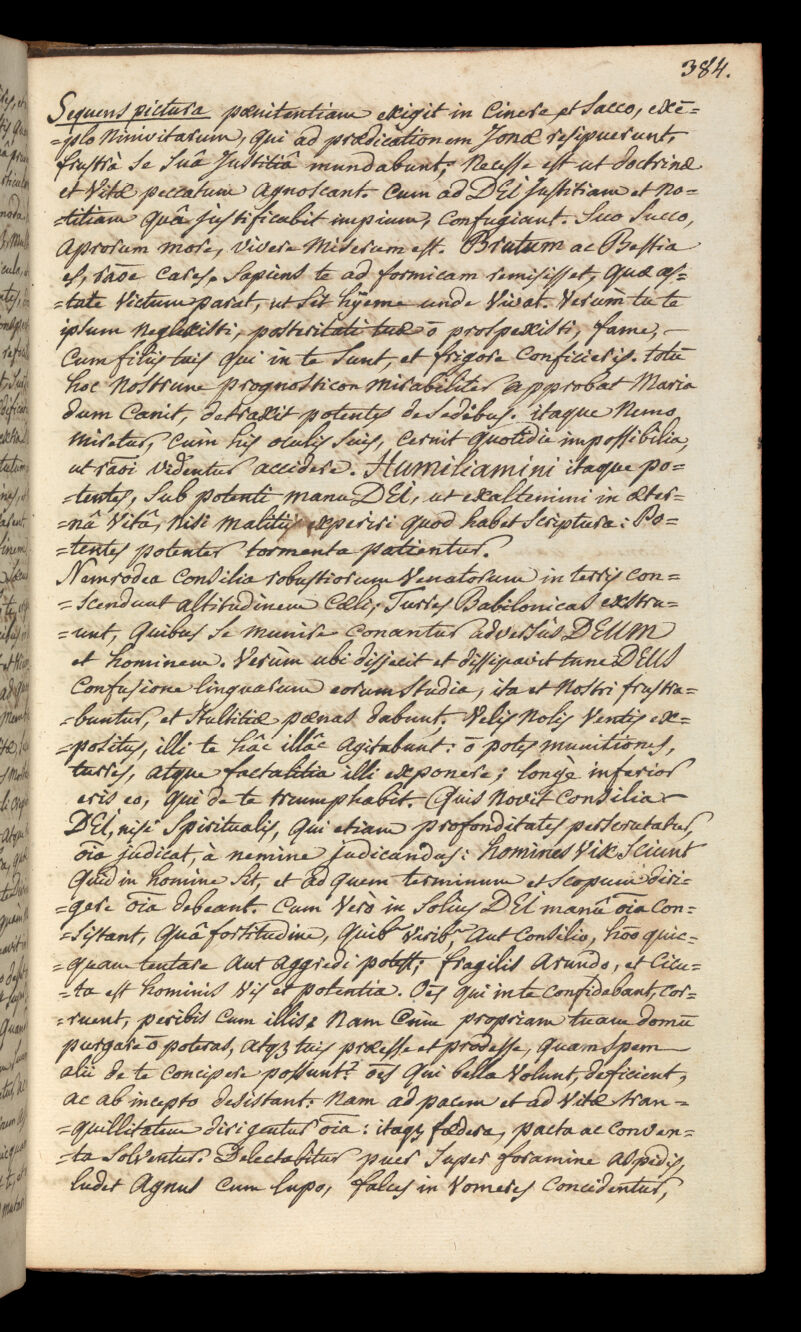 384.
Sequens pictura pœnitentiam exigit in Cinere et Sacco, exē=
=plo Ninivitarum, qui ad prædicationem Jonæ resipuerunt,
frustrà se suâ Justitiâ mundabunt; Necesse est ut doctrinæ
et Vitæ peccatum agnoscant. Cum ad DEI Justitiam et no=
=titiam quâ justificabit impium, confugiant. Suo Succo,
Aprorum more, vivere miserum est. Brutum ac Bestia
es, raōe cares. Sapiens te ad formicam remisisset, quæ æs=
=tate Victum parat, ut sit hÿeme unde Vivat. Verùm tu te
ipsum neglexisti, posteritati tuæ ō prospexisti, fame, –
Cum filiis tuis qui in te sunt, et frigore conficieris. totū
hoc Nostrum prognosticon mirabiliter approbat Maria
dum Canit, detraxit potentes de sedibus. itaque Nemo
miretur, cùm his oculis suis, cernit quotidie impossibilia,
ut raōi videntur accidere. Humiliamini itaque po=
=tentes, sub potenti manu DEI, ut exaltemini in æter=
=nâ Vitâ, nisi malitis experiri quod habet Scriptura: Po=
=tentes potenter tormenta patientur.
Namrodea Consilia robustiorum Venatorum in terris con=
=scendunt altitudinem Cœli; Turres Babilonicas exstru=
=unt, quibus se munire conantur adversùs DEUM
et hominem. Verùm ubi disjecit et dissipavit tunc DEUS
Confusione linguarum eorum studia, ita et Nostri frustra=
=buntur, et stultitiæ pœnas dabunt. Velis nolis Ventis ex=
=positus, illi te hâc illâc agitabunt: ō potes munitiones,
turres, atque factalitia illi exponere; longè inferior
eris eo, qui de te triumphabit. Quis novit Consilia –
DEI, nisi Spiritualis, qui etiam profonditates perscrutatur,
oīa judicat, à nemine judicandus: homines Vix Sciunt
quid in homine sit, et ad quem terminum et Scopum diri=
=gere oīa debeant. Cum Vero in Solius DEI manû oīa con=
=sistant, quâ fortitudine, quib9 virib9, aut Consilio, hōo quic=
=quam tentare aut aggredi potest; fragilis Arundo, et Cicu=
=ta est hominis vis et potentia. Oēs qui in te confidebant, cor=
=ruent, peribis cum illis: Nam Cùm propriam tuam domū
purgare ō poteras, atqȝ tuis præesse et prodesse, quam Spem
alii de te concipere possunt? oēs qui bella volunt, deficient,
ac ab incepto desistant: Nam ad pacem et ad Vitæ tran=
=quillitatem dirigentur oīa: itaqȝ fœdera, pacta ac conven=
=ta solventur. Delectabitur puer super foramine aspidis,
ludet Agnus cum lupo, falces in Vomeres concidentur,